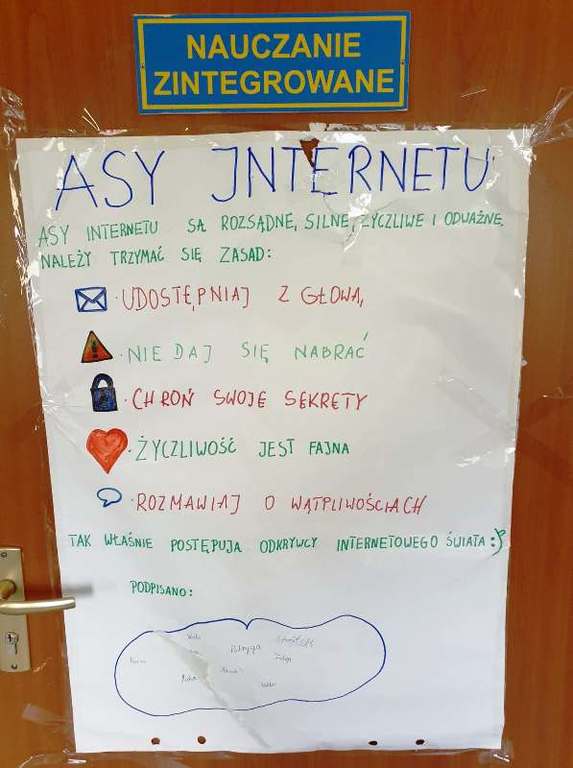 NAUCZANIE
ZINTEGROWANE
ASY INTERNETU
ASY INTERNETU SĄ ROZSĄDNE, SILNE, ŻYCZLIWE I ODWAŻNE.
NALEŻY TRZYMAĆ SIĘ ZASAD:
· UDOSTĘPNIAJ Z GŁOWĄ,
· NIE DAJ SIĘ NABRAĆ
· CHROŃ SWOJE SEKRETY
· ŻYCZLIWOŚĆ JEST FAJNA
· ROZMAWIAJ O WĄTPLIWOŚCIACH
TAK WŁAŚNIE POSTĘPUJĄ ODKRYWCY INTERNETOWEGO ŚWIATA:)
PODPISANO: